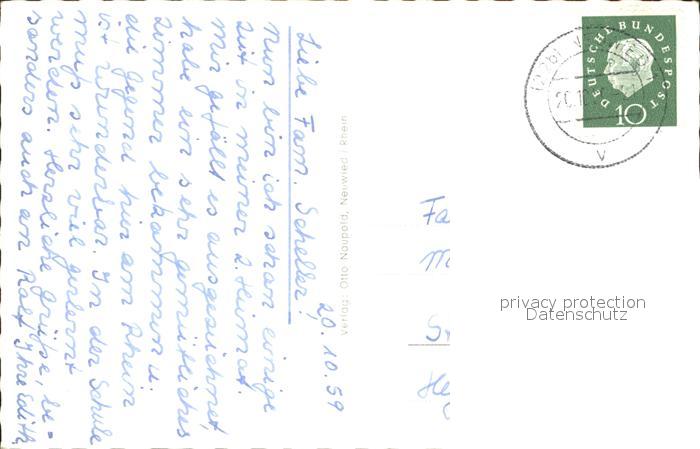 20.10.59
Liebe Fam. Scheller!
Nun bin ich schon einige
Zeit in meiner 2. Heimat.
Mir gefällt es ausgezeichnet,
habe ein sehr gemütliches
Zimmer bekommen u.
die Gegend hier am Rhein
ist wunderbar. In der Schule
muß sehr viel gelernt
werden. Herzliche Grüße, be=
sonders auch an Ralf Ihre Edith
Verlag: Otto Naupold, Neuwied / Rhein
DEUTSCHE BUNDESPOST
10
(22b)
20.10.
v
Fa
M
S
He
privacy protection
Datenschutz